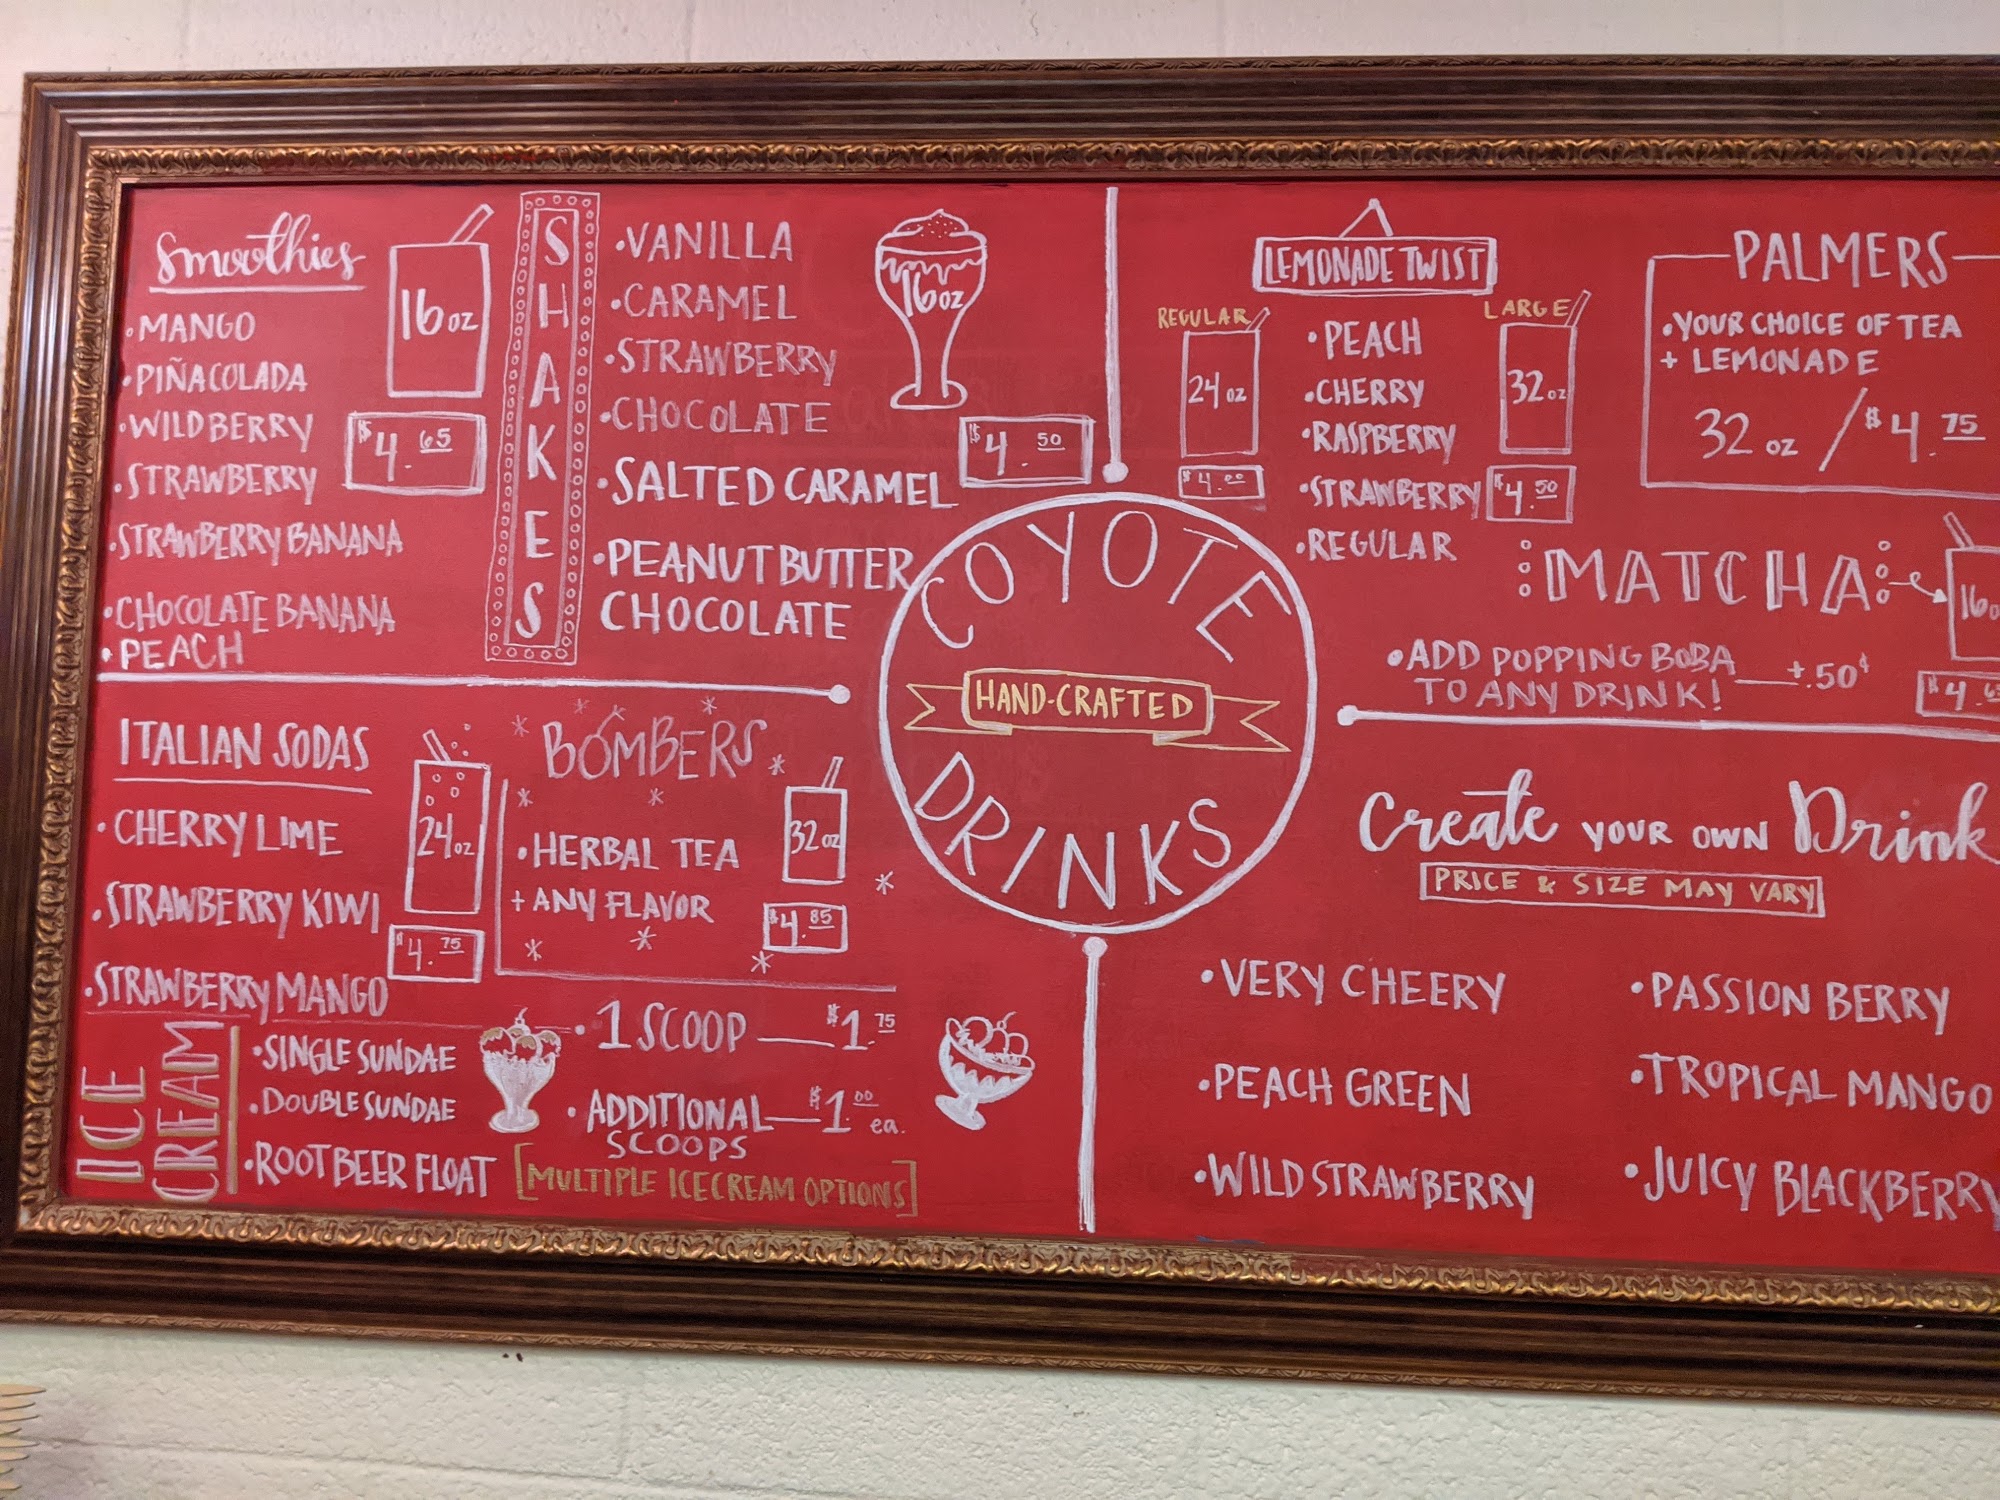 Smoothies
16 oz
• MANGO
• PIÑACOLADA
• WILDBERRY
• STRAWBERRY
• STRAWBERRY BANANA
• CHOCOLATE BANANA
• PEACH
$4.65
SHAKES
• VANILLA
• CARAMEL
• STRAWBERRY
• CHOCOLATE
• SALTED CARAMEL
• PEANUT BUTTER
CHOCOLATE
16 oz
$4.50
LEMONADE TWIST
REGULAR
24 oz
$4.00
• PEACH
• CHERRY
• RASPBERRY
• STRAWBERRY
• REGULAR
LARGE
32 oz
$4.50
PALMERS
• YOUR CHOICE OF TEA
+ LEMONADE
32 oz / $4.75
MATCHA
16
• ADD POPPING BOBA
TO ANY DRINK! +.50¢
COYOTE
HAND-CRAFTED
DRINKS
ITALIAN SODAS
• CHERRY LIME
• STRAWBERRY KIWI
• STRAWBERRY MANGO
24 oz
$4.75
BOMBERS
• HERBAL TEA
+ ANY FLAVOR
32 oz
$4.85
ICE
CREAM
• SINGLE SUNDAE
• DOUBLE SUNDAE
• ROOTBEER FLOAT
• 1 SCOOP $1.75
• ADDITIONAL $1.00 ea.
SCOOPS
[MULTIPLE ICECREAM OPTIONS]
Create YOUR OWN Drink
PRICE & SIZE MAY VARY
• VERY CHEERY
• PEACH GREEN
• WILD STRAWBERRY
• PASSION BERRY
• TROPICAL MANGO
• JUICY BLACKBERRY